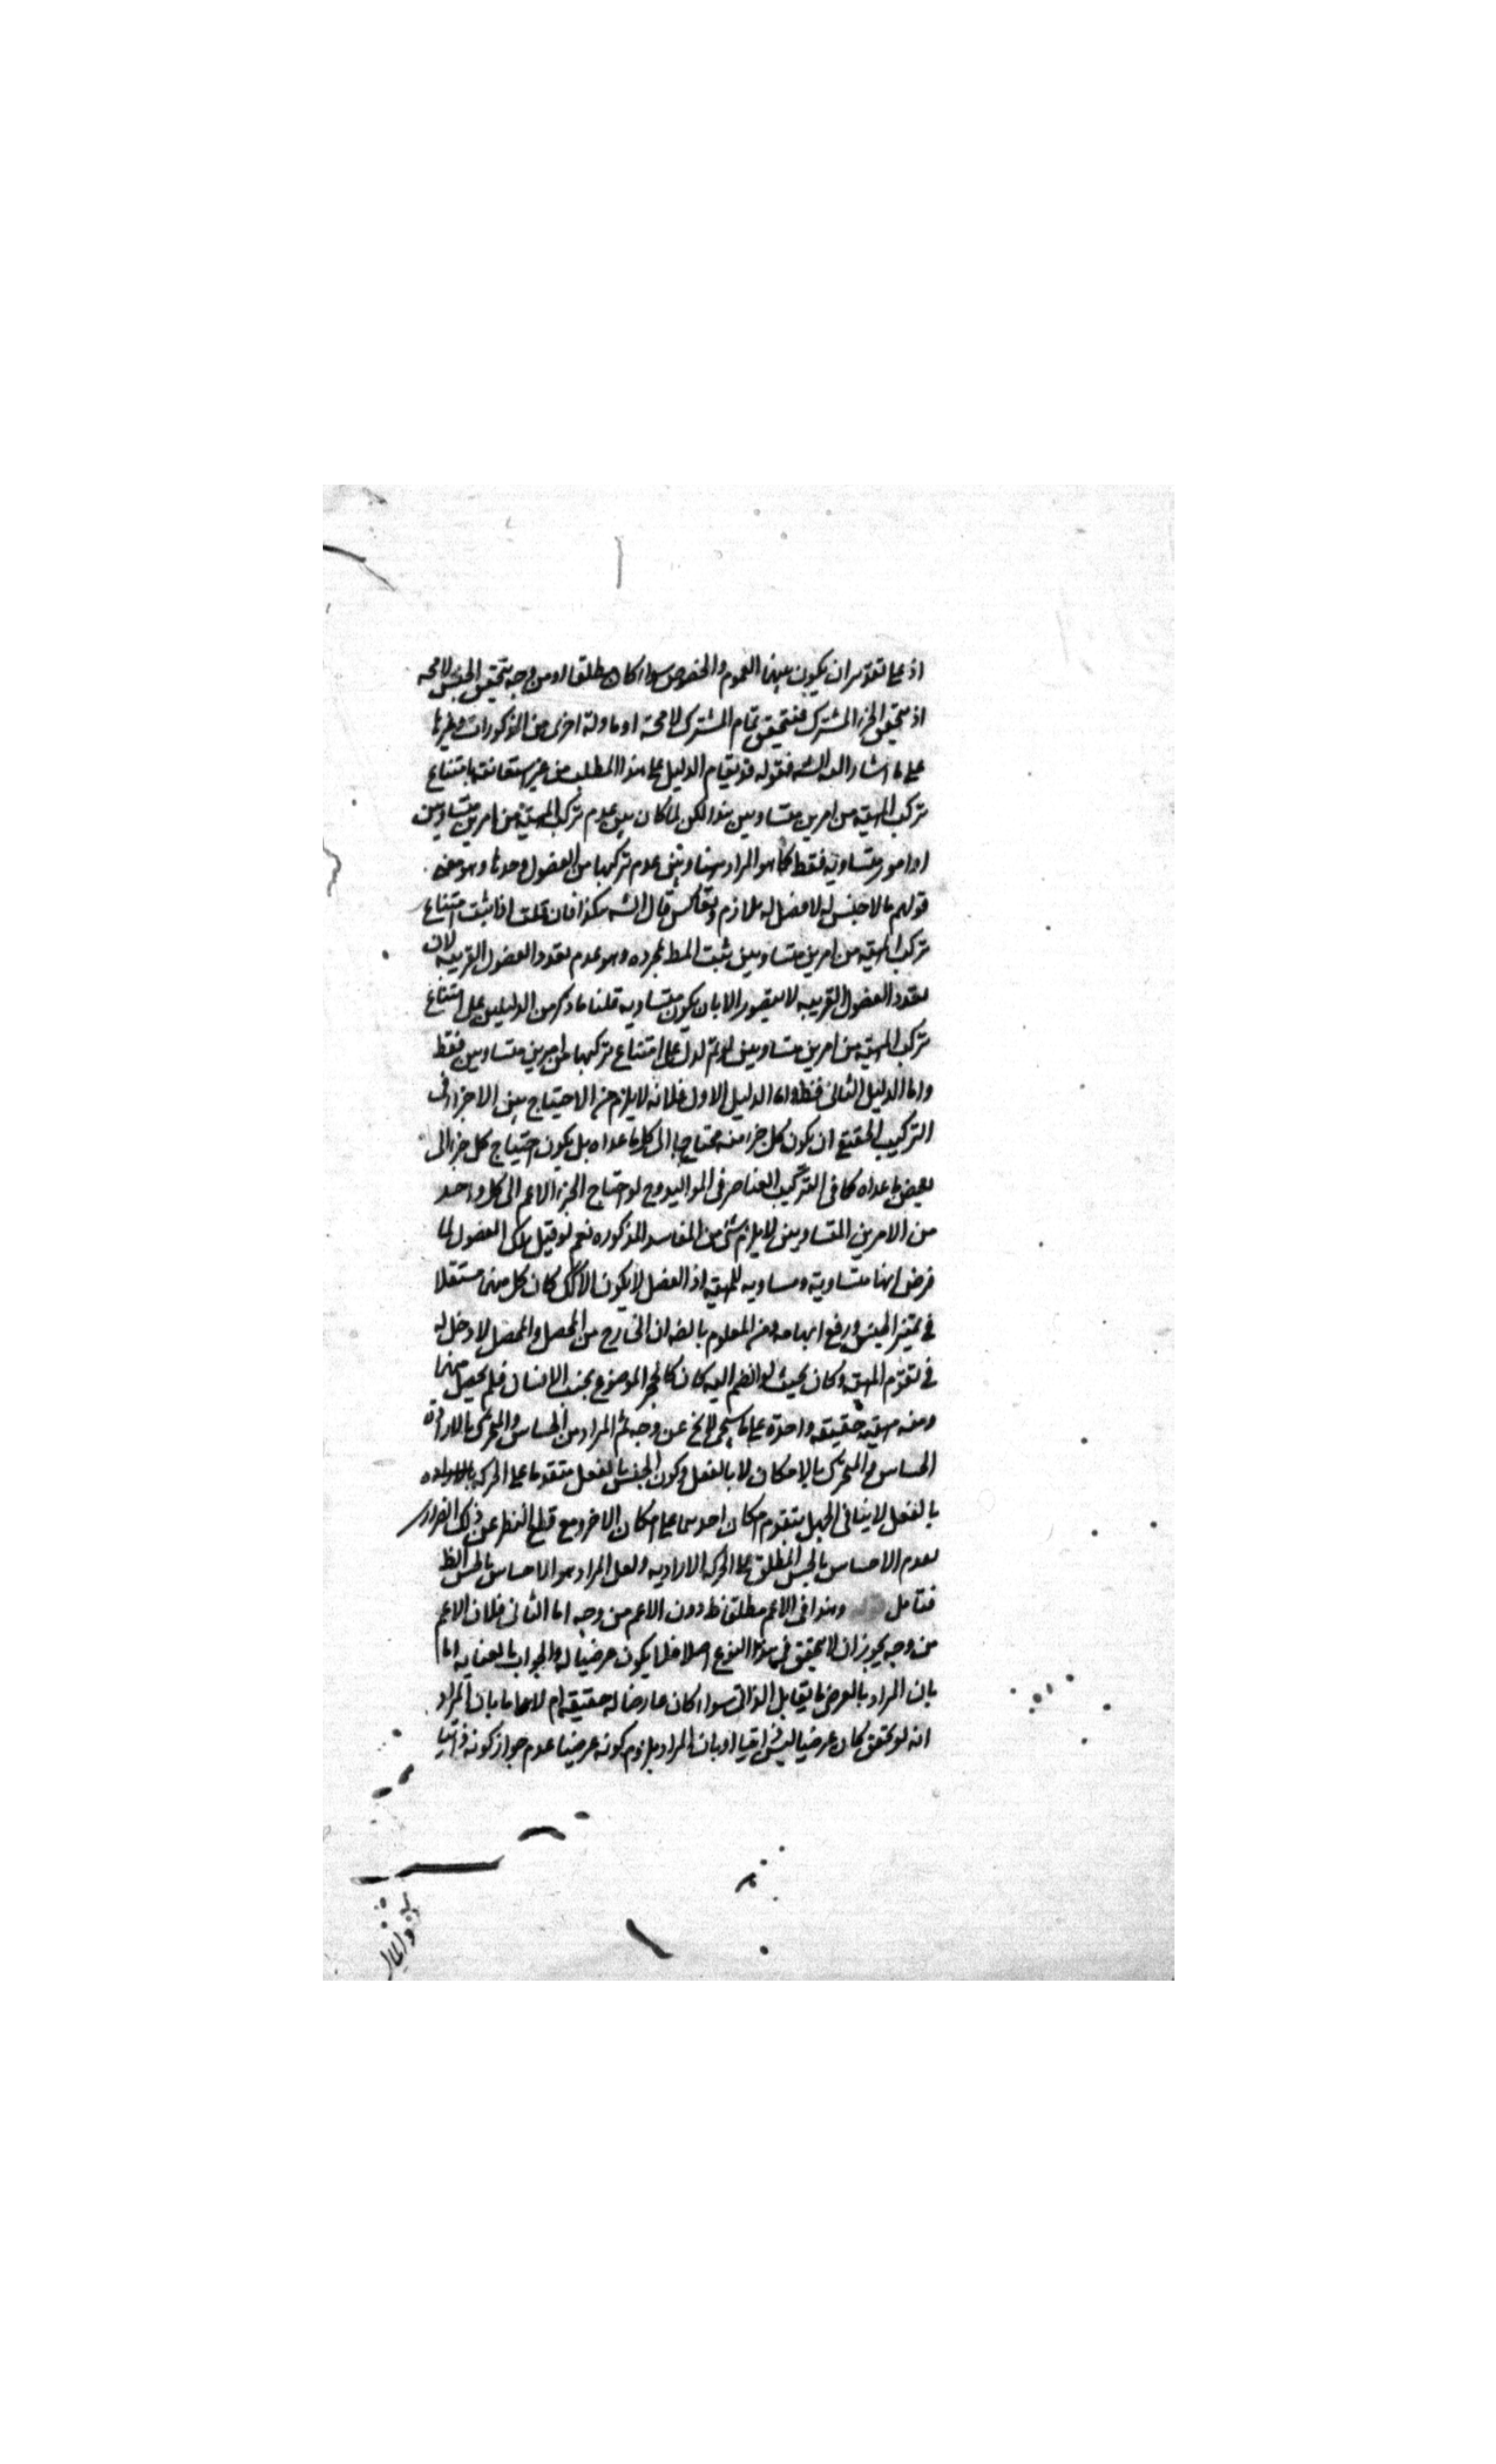 اذ على تقدير ان يكون بينهما العموم والخصوص سواء كان مطلقا او من وجه يتحقق الجنس لا محه
اذ يتحقق الجزء المشترك فيتحقق تمام المشترك لا محة او ما وله اخرى من المذكورات وغيرها
على ما اشار اليه الشه فقوله قد يقام الدليل على هذا المطلب من غير استعانته بامتناع
تركب المهية من امرين متساويين هذا لكن لما كان بين عدم تركب المهية من امرين متساويين
او امور متساويه فقط كما هو المراد هنا وبين عدم تركبها من الفصول وحدها وهو معنى
قولهم ما لا جنس له لا فصل له تلازم وتعاكس قال الشه هكذا فان قلت اذا ثبت امتناع
تركب المهية من امرين متساويين ثبت المط بمجرده وهو عدم تعدد الفصول القريبه لان
تعدد الفصول القريبه لا يتصور الا بان يكون متساويه قلنا ما ذكر من الدليلين على امتناع
تركب المهية من امرين متساويين لو تم لدل على امتناع تركبها من امرين متساويين فقط
واما الدليل الثانى فظ واما الدليل الاول فلانه لا يلزم من الاحتياج بين الاجزاء فى
التركيب الحقيقى ان يكون كل جزء منه محتاجا الى كل ما عداه بل يكون احتياج كل جزء الى
بعض ما عداه كما فى التركيب العناصر فى المواليد وح لو احتاج الجزء الاعم الى كل واحد
من الامرين المتساويين لا يلزم شئ من المفاسد المذكوره نعم لو قيل تلك الفصول لما
فرض انها متساوية ومساويه للمهية اذ الفصل لا يكون الا كك كان كل منها مستقلا
فى تميز الجنس ورفع ابهامه ومن المعلوم بالضه ان الخارج من المحصل والمحصل لا دخل له
فى تقوم المهية وكان بحيث لو انضم اليه كان كالحجر الموضوع بجنب الانسان فلم يحصل منهما
ومنه مهية حقيقيه واحدة على ما سيجئ لا يخ عن وجه ثم المراد من الحساس والمتحرك بالارادة
الحساس والمتحرك بالامكان لا بالفعل وكون الجنس بالفعل متقدما على الحركه بالاراده
بالفعل لا ينافى الجهل بتقدم امكان احدهما على امكان الاخر ومع قطع النظر عن ذلك المراد
بعدم الاحساس بالجنس المطلق على الحركه الاراديه ولعل المراد هو الاحساس بالحس الظ
فتامل قوله وهذا فى الاعم مطلقا ظ دون الاعم من وجه اما الثانى فلان الاعم
من وجه يجوز ان لا يتحقق فى هذا النوع اصلا فلا يكون عرضيا له والجواب بالعنايه اما
بان المراد بالعرض ما يقابل الذاتى سواء كان عارضا له حقيقة ام لا واما بان المراد
انه لو تحقق كان عرضيا ليس ذاتيا او بان المراد يلزم كونه عرضيا عدم جواز كونه ذاتيا